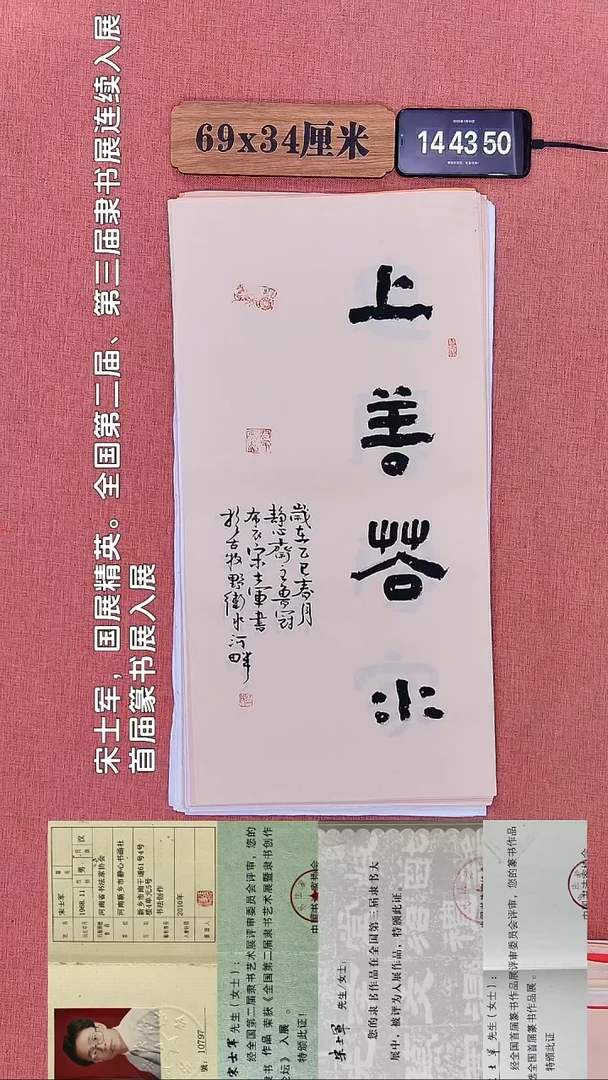 宋士军，国展精英。全国第二届、第三届隶书展连续入展
首届篆书展入展
69x34厘米
14 43 50
上善若水
岁在乙巳春月
静心斋主鲁冠
布衣宋士军书
于古牧野卫水河畔
宋士军
1968.11
男
汉
河南省书法家协会
河南新乡市静心书画社
新乡市南干道61号4号
楼4单元5号
书法创作
2010年
号：10797
宋士军 先生（女士）：
经全国第二届隶书艺术展评审委员会评审，您的
隶书 作品 荣获《全国第二届隶书艺术展暨隶书创作
论坛》入展。
特颁此证！
宋士军 先生/女士：
您的隶书作品在全国第三届隶书大
展中，被评为入展作品，特颁此证。
士军 先生（女士）：
经全国首届篆书作品展评审委员会评审，您的篆书作品
全国首届篆书作品展。
特颁此证